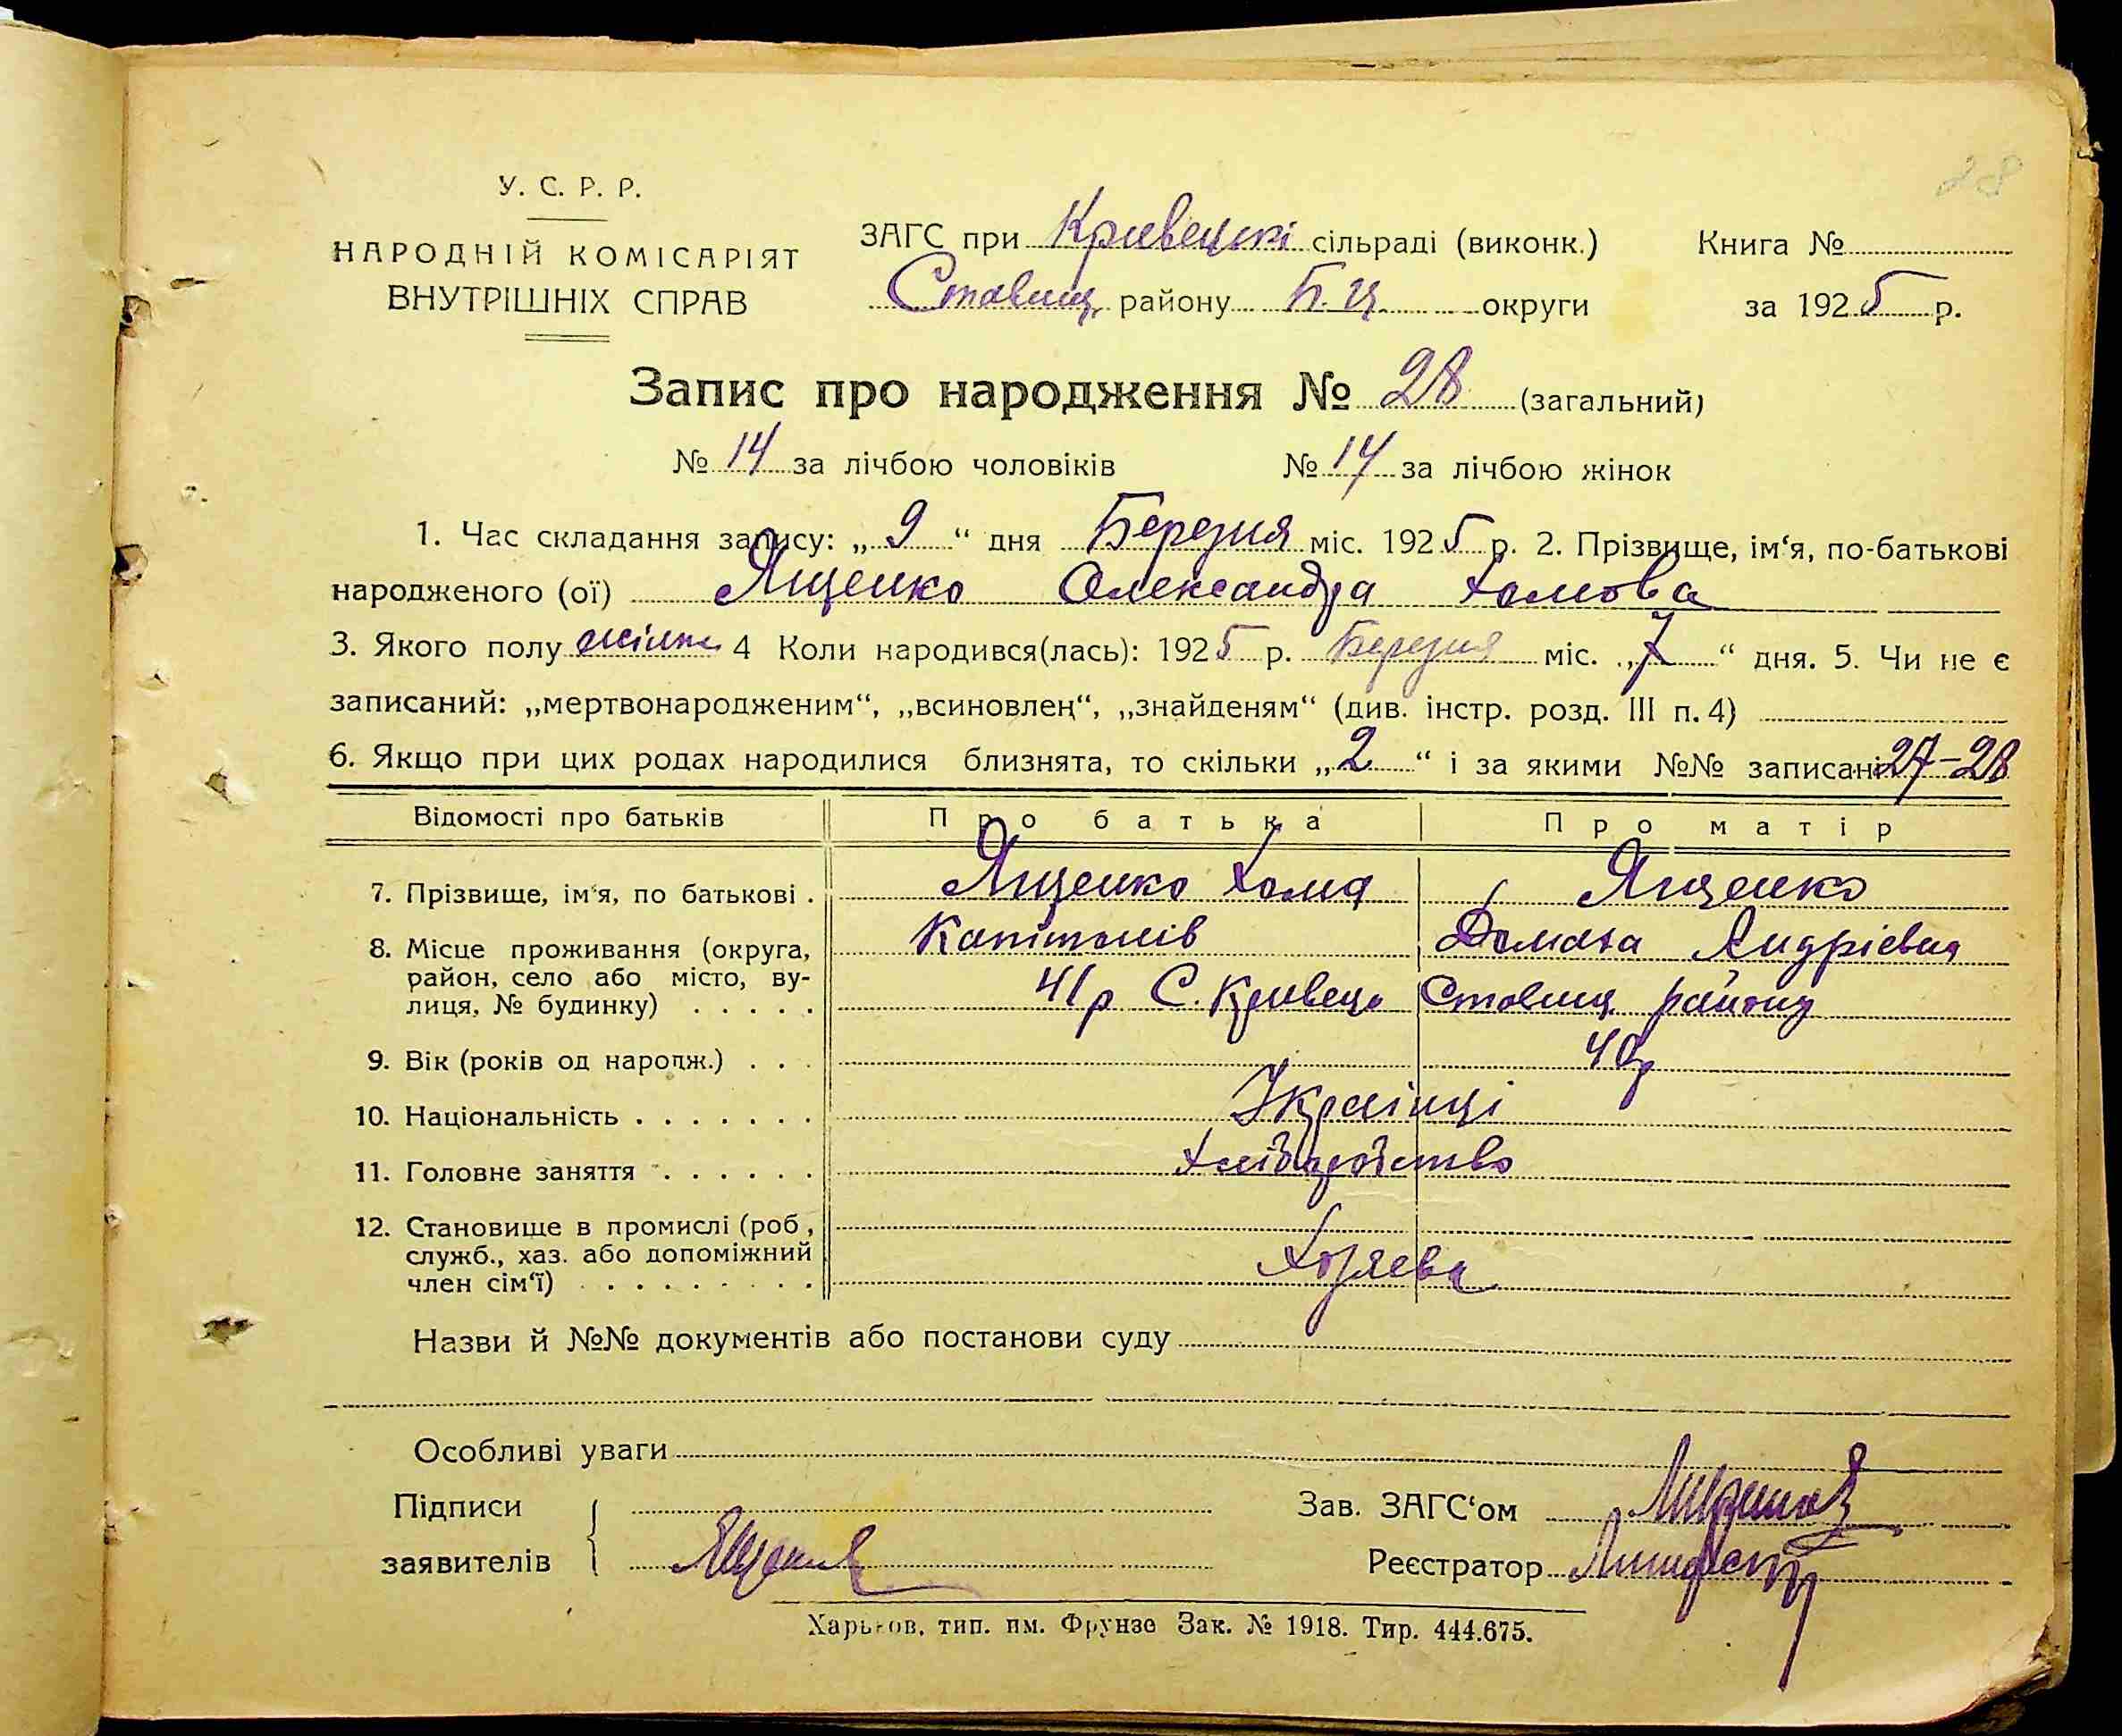 28
У. С. Р. Р.
НАРОДНІЙ КОМІСАРІЯТ
ВНУТРІШНІХ СПРАВ
ЗАГС при Кривецькі сільраді (виконк.)
Ставищ. району Б. Ц. округи
Книга №
за 1925 р.
Запис про народження № 28 (загальний)
№ 14 за лічбою чоловіків № 14 за лічбою жінок
1. Час складання запису: „9“ дня Березня міс. 1925 р. 2. Прізвище, ім‘я, по-батькові
народженого (ої) Ященко Олександра Хомова
3. Якого полу жіноч 4 Коли народився(лась): 1925 р. Березня міс. „7“ дня. 5. Чи не є
записаний: „мертвонародженим“, „всиновлен“, „знайденям“ (див. інстр. розд. III п. 4)
6. Якщо при цих родах народилися близнята, то скільки „2“ і за якими №№ записані 27-28
Відомості про батьків Про батька Про матір
7. Прізвище, ім‘я, по батькові . Ященко Хома Ященко
Капітонів Домаха Андрієвна
8. Місце проживання (округа,
район, село або місто, ву-
лиця, № будинку) . . . . . 41р С. Кривець Ставищ. району
9. Вік (років од народж.) . . . 40р
10. Національність . . . . . . . Українці
11. Головне заняття . . . . . . Хліборобство
12. Становище в промислі (роб,
служб., хаз. або допоміжний
член сім‘ї) . . . . . . . . . Хозяева
Назви й №№ документів або постанови суду
Особливі уваги
Підписи
заявителів
Ященко
Зав. ЗАГС‘ом
Реєстратор
Харьков, тип. им. Фрунзе Зак. № 1918. Тир. 444.675.